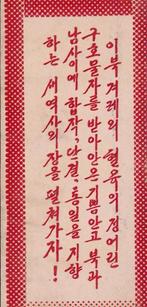 이북겨레의 혈육의 정어린
구호물자를 받아안은 기쁨안고 북과
남사이에 합작, 단결, 통일을 지향
하는 새역사의 장을 펼쳐가자!